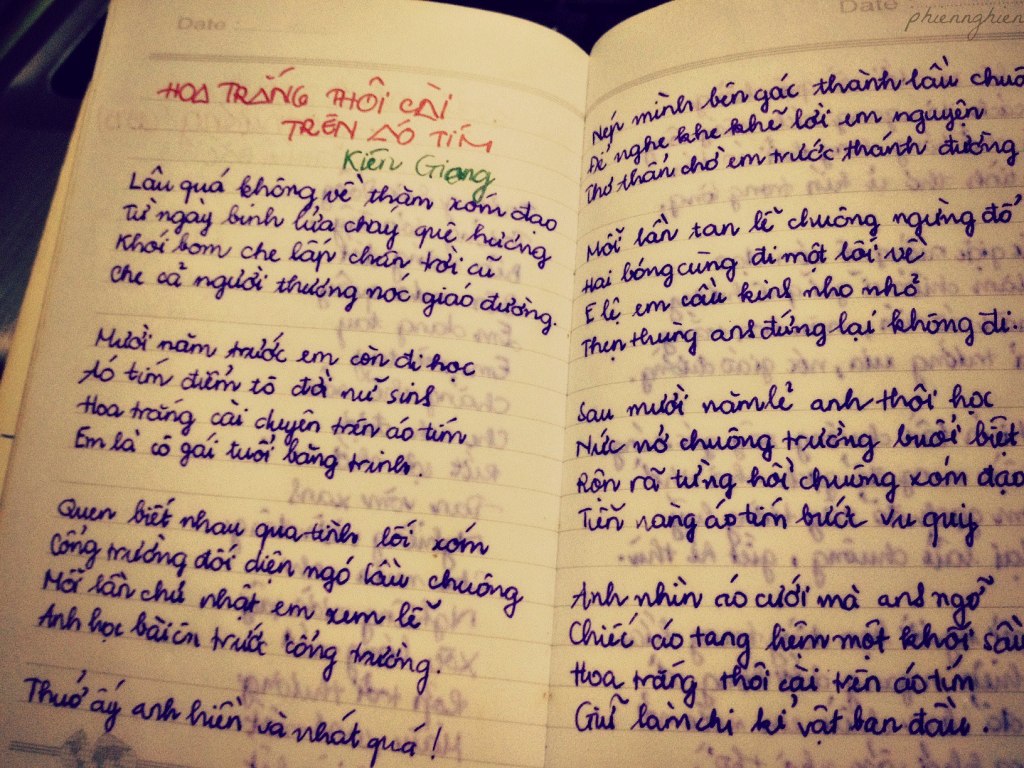 Date :
HOA TRẮNG THÔI CÀI
TRÊN ÁO TÍM
Kiên Giang
Lâu quá không về thăm xóm đạo
Từ ngày binh lửa cháy quê hương
Khói bom che lấp chân trời cũ
Che cả người thương nóc giáo đường.
Mười năm trước em còn đi học
Áo tím điểm tô đời nữ sinh
Hoa trắng cài duyên trên áo tím
Em là cô gái tuổi băng trinh.
Quen biết nhau qua tình lối xóm
Cổng trường đối diện ngó lầu chuông
Mỗi lần chủ nhật em xem lễ
Anh học bài ôn trước cổng trường.
Thuở ấy anh hiền và nhát quá !
Date
phiennghien
Nép mình bên gác thánh lầu chuô
Để nghe khe khẽ lời em nguyện
Thơ thẩn chờ em trước thánh đường
Mỗi lần tan lễ chuông ngừng đổ
Hai bóng cùng đi một lối về
E lệ em cầu kinh nho nhỏ
Thẹn thùng anh đứng lại không đi.
Sau mười năm lẻ anh thôi học
Nức nở chuông trường buổi biệt
Rộn rã từng hồi chuông xóm đạo
Tiễn nàng áo tím bước vu quy
Anh nhìn áo cưới mà anh ngỡ
Chiếc áo tang liệm một khối sầu
Hoa trắng thôi cài trên áo tím
Giữ làm chi kỉ vật ban đầu.